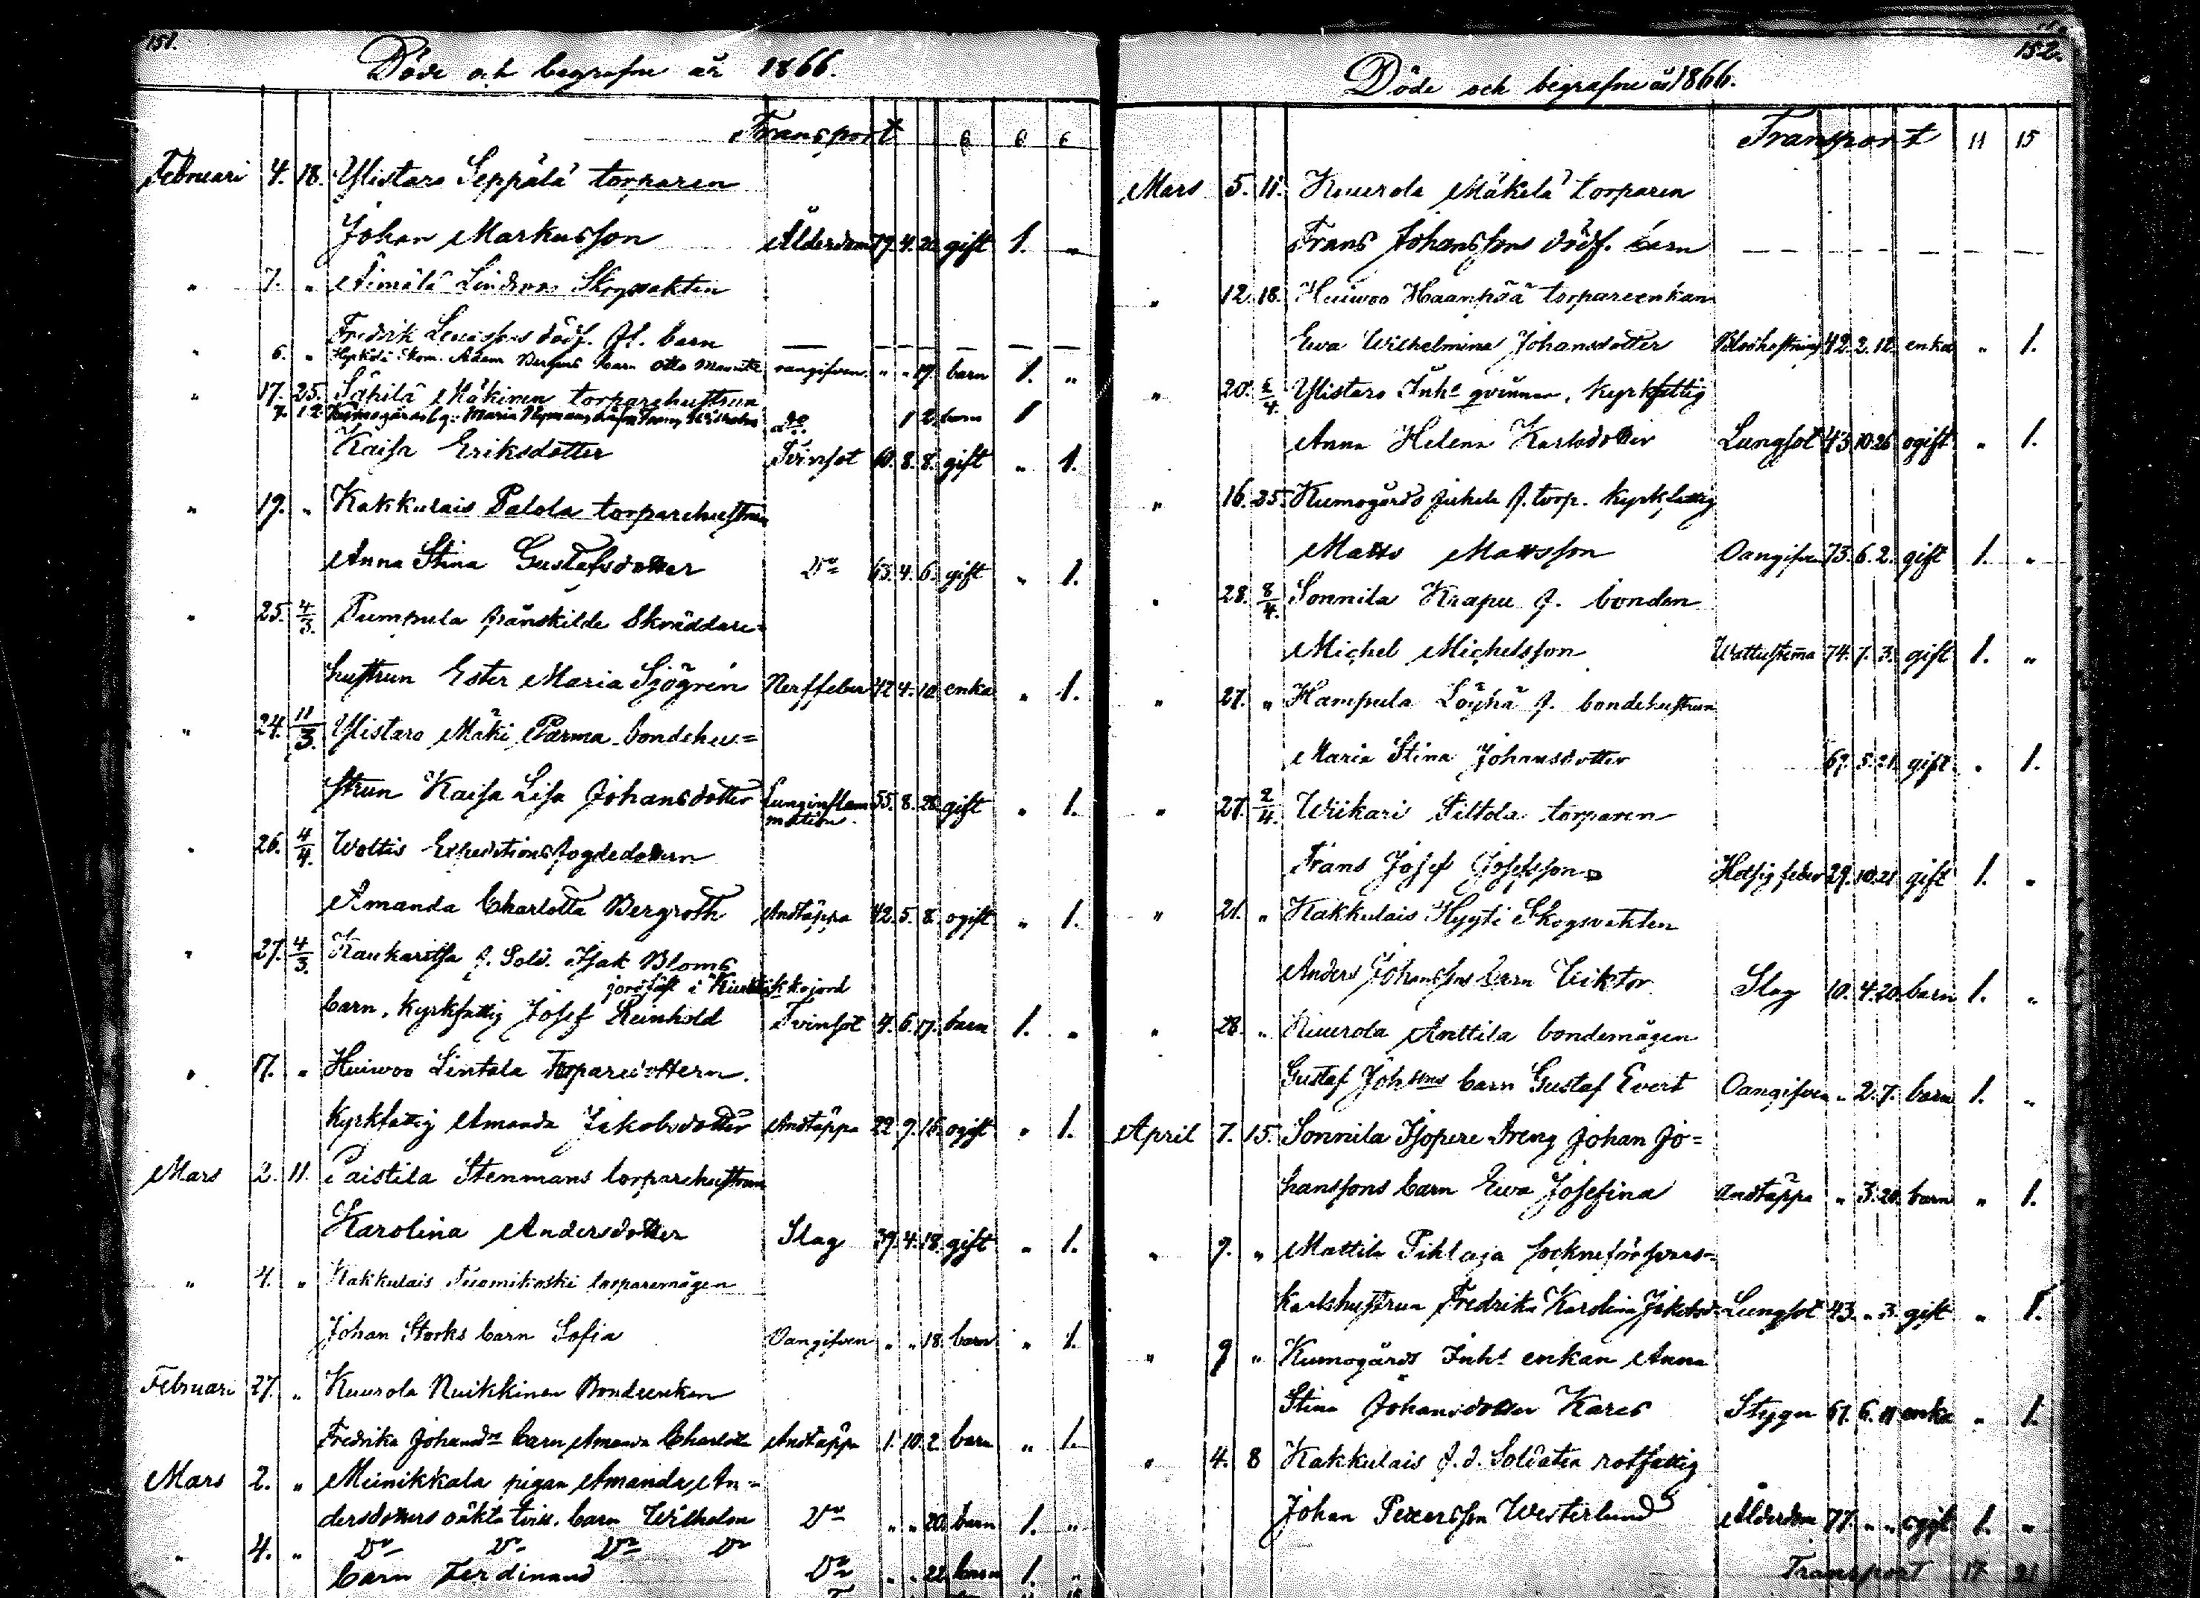 151.
Döde och begrafne år 1866.
Transport 6 6 6
Februari 4. 18. Ylistaro Seppälä torparen
Johan Markusson Ålderdom 79. 4. 20 gift 1. "
" 7. " Lindroos Skogvakten
Fredrik dödf. barn — — — — —
" 6. " Adam Bergens barn Otto oangifven " " 19. barn 1. "
" 17. 25. Säkilä Mäkinen torparehustrun
7. 12 Maria Nymans 1 2 barn 1
Kaisa Eriksdotter Tvinsot 60. 8. 8. gift " 1.
" 19. " Kakkulais Palola torparehustrun
Anna Stina Gustafsdotter Do 63. 4. 6. gift " 1.
" 25. 4/3. Pumpula frånskilde Skräddare=
hustrun Ester Maria Sjögrén Nerffeber 42 4. 10. enka " 1.
" 24. 11/3. Ylistaro Mäki Parma bondehu=
strun Kaisa Lisa Johansdotter Lunginflammation. 55. 8. 28. gift " 1.
" 26. 4/4. Woltis Expeditionsfogdedottern
Amanda Charlotta Bergroth Andtäppa 42. 5. 8. ogift " 1.
" 27. 4/3. Kaukaritsa f. Sold. Isak Bloms
jordfäst i
barn, kyrkfattig Josef Reinhold Tvinsot 4. 6. 17. barn 1. "
" 17. " Huiwoo Lintala torparedottern.
kyrkfattig Amanda Jakobsdotter Andtäppa 22 9. 16. ogift " 1.
Mars 2. 11. Paistila Stenmans torparehustrun
Karolina Andersdotter Slag 39. 4. 18. gift " 1.
" 4. " Kakkulais Tuomikoski torparemågen
Johan Storks barn Sofia Oangifven " " 18. barn " 1.
Februari 27. " Kuurola Nuikkinen Bondeenkan
Fredrika Johansdr barn Amanda Charlotta Andtäppa 1. 10. 2. barn " 1.
Mars 2. " Meinikkala pigan Amanda An=
dersdotters oäkta tvill. barn Wilhelm Do " " 20. barn 1. "
" 4. " Do Do Do Do
barn Ferdinand Do " " 22. barn 1. "
152.
Döde och begrafne år 1866.
Transport 11 15
Mars 5. 11. Kuurola Mäkelä torparen
Frans Johanssons dödf. barn — — — — — — —
" 12. 18. Huiwoo Haanpää torpareenkan
Ewa Wilhelmina Johansdotter Blodhostning 42. 2. 12. enka " 1.
" 20. 2/4. Ylistaro Inhe qvinnan, kyrkfattig
Anna Helena Karlsdotter Lungsot 43 10 26 ogift " 1.
" 16. 25. Kumogårds f. torp. kyrkfattig
Matts Mattsson Oangifven 73. 6. 2. gift 1. "
" 28. 8/4. Sonnila Krapu f. bonden
Michel Michelsson 74. 7. 3. gift 1. "
" 27. " Hampula Löyhä f. bondehustrun
Maria Stina Johansdotter 69. 5. 21. gift " 1.
" 27. 2/4. Wiikari Siltola torparen
Frans Josef Josefsson Hetsig feber 29. 10. 21 gift 1. "
" 21. " Kakkulais Hyyti Skogsvakten
Anders Johanssons barn Viktor Slag 10. 4. 20. barn 1. "
" 28. " Kuurola Anttila bondemågen
Gustaf Johssons barn Gustaf Evert Oangifven " 2. 7. barn 1. "
April 7. 15. Sonnila Isopere dreng Johan Jo=
hanssons barn Ewa Josefina Andtäppa " 3. 20. barn " 1.
" 9. " Mattila Pihlaja socknefórsvars=
karlshustrun Fredrika Karolina Jakobsd. Lungsot 43. " 3. gift " 1.
" 9 " Kumogårds Inhs enkan Anna
Stina Johansdotter Kares Stygn 61. 6. 11 enka " 1.
" 4. 8 Kakkulais f.d. Soldaten rotfattig
Johan Petersson Westerlund Ålderdom 77. " " ogift 1. "
Transport 17 21